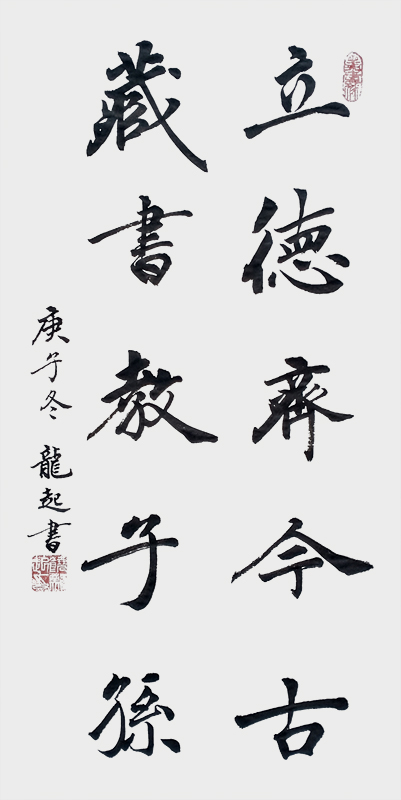 立德齊今古
藏書教子孫
庚子冬 龍起書